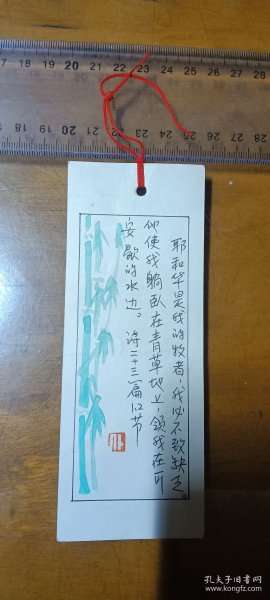 耶和华是我的牧者，我必不致缺乏。
他使我躺卧在青草地上，领我在可
安歇的水边。诗二十三篇1.2节
7 18 19 20 21 22 23 24 25 26 27 28
孔夫子旧书网
www.kongfz.com